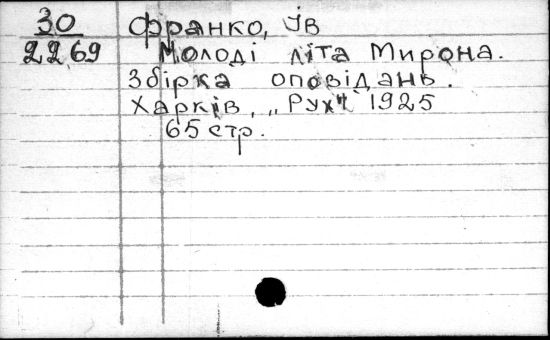 30 Франко, Ів
2269 Молоді літа Мирона.
Збірка оповідань.
Харків, „Рух" 1925
65 стр.